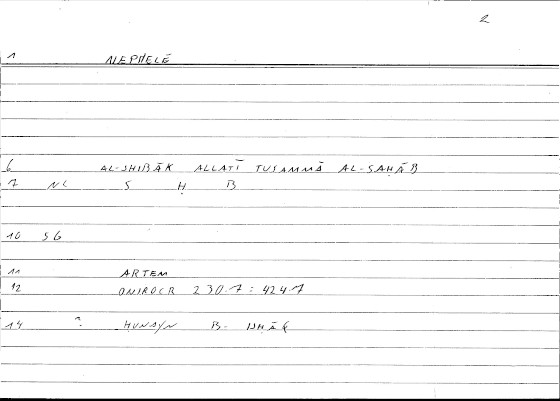 2
1 NEPHELĒ
6 AL-SHIBĀK ALLATĪ TUSAMMĀ AL-SAḤĀB
7 NC S Ḥ B
10 SG
11 ARTEM
12 ONIROCR 230.7 = 424.7
14 ? ḤUNAYN B-